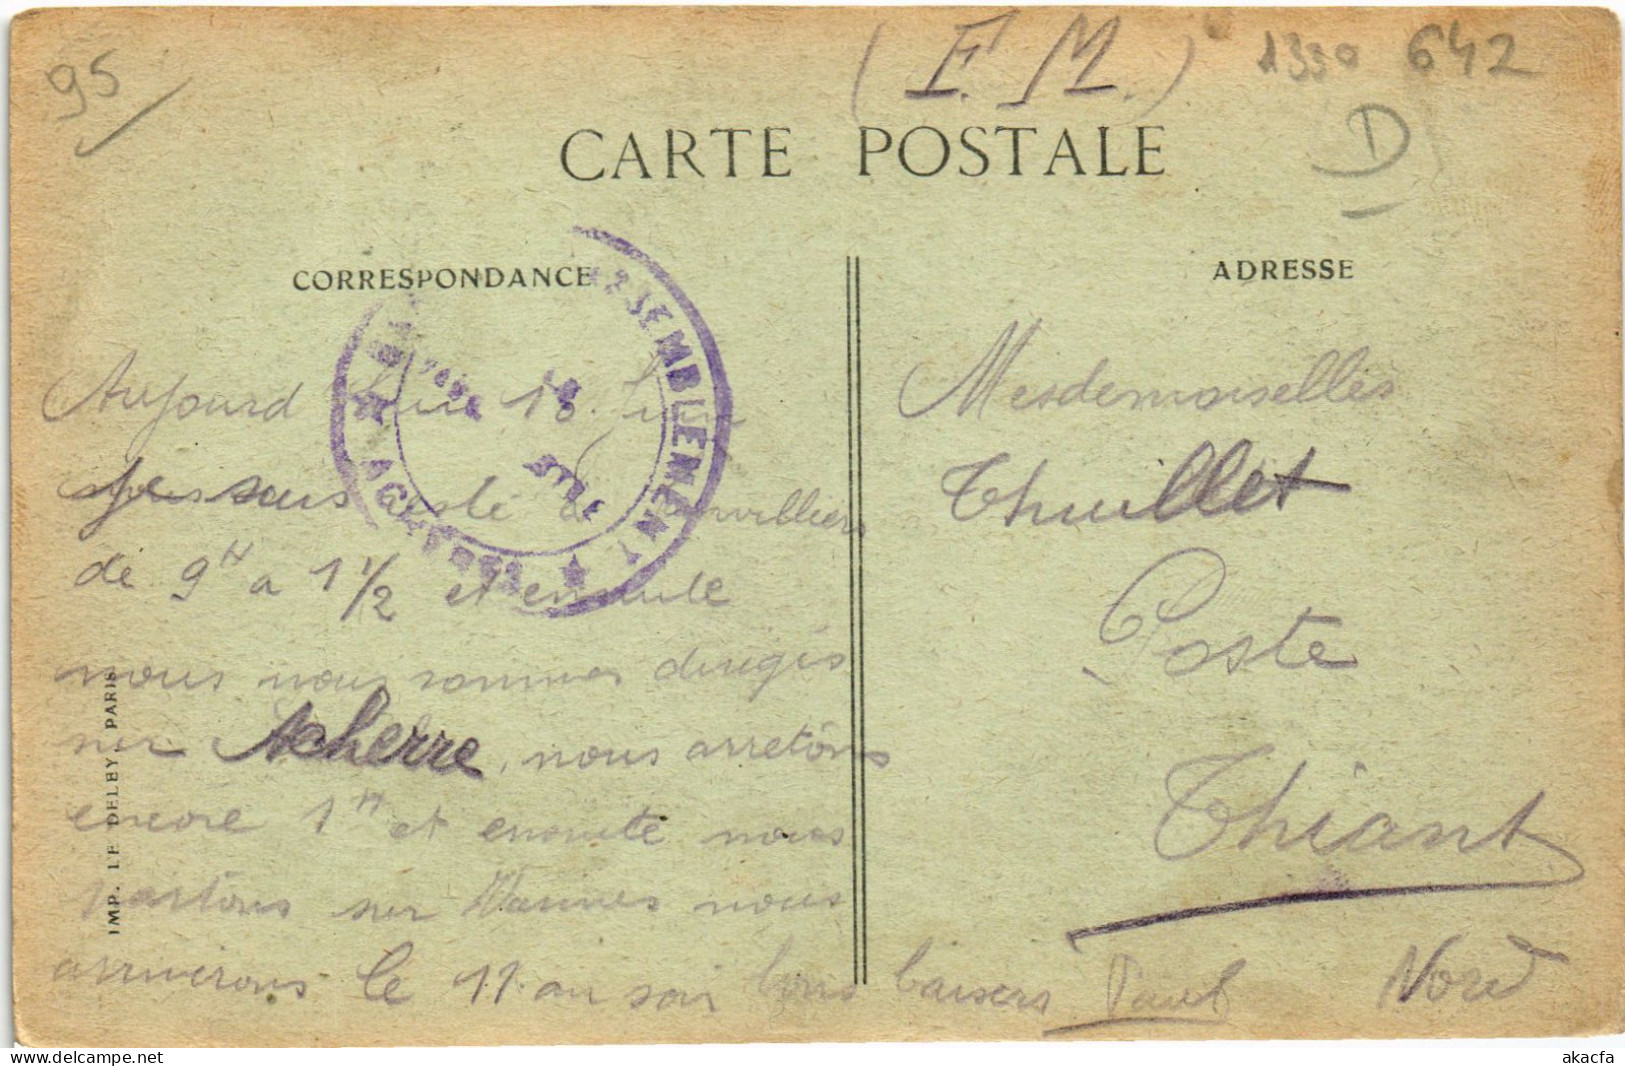 95
(F. M.)
1330 642
D
CARTE POSTALE
CORRESPONDANCE
ADRESSE
SEMBLEMENT
Aujourd hui 18 Juin
resté à
de 9H a 1 1/2 et ensuite
nous nous sommes dirigés
sur Acherre, nous arretons
encore 1H et ensuite nous
partons sur Vannes nous
arriverons le 11 au soir bons baisers Paul
Mesdemoiselles
Thuillet
Poste
Thiant
Nord
IMP. LE DELEY, PARIS
akacfa
delcampe.net